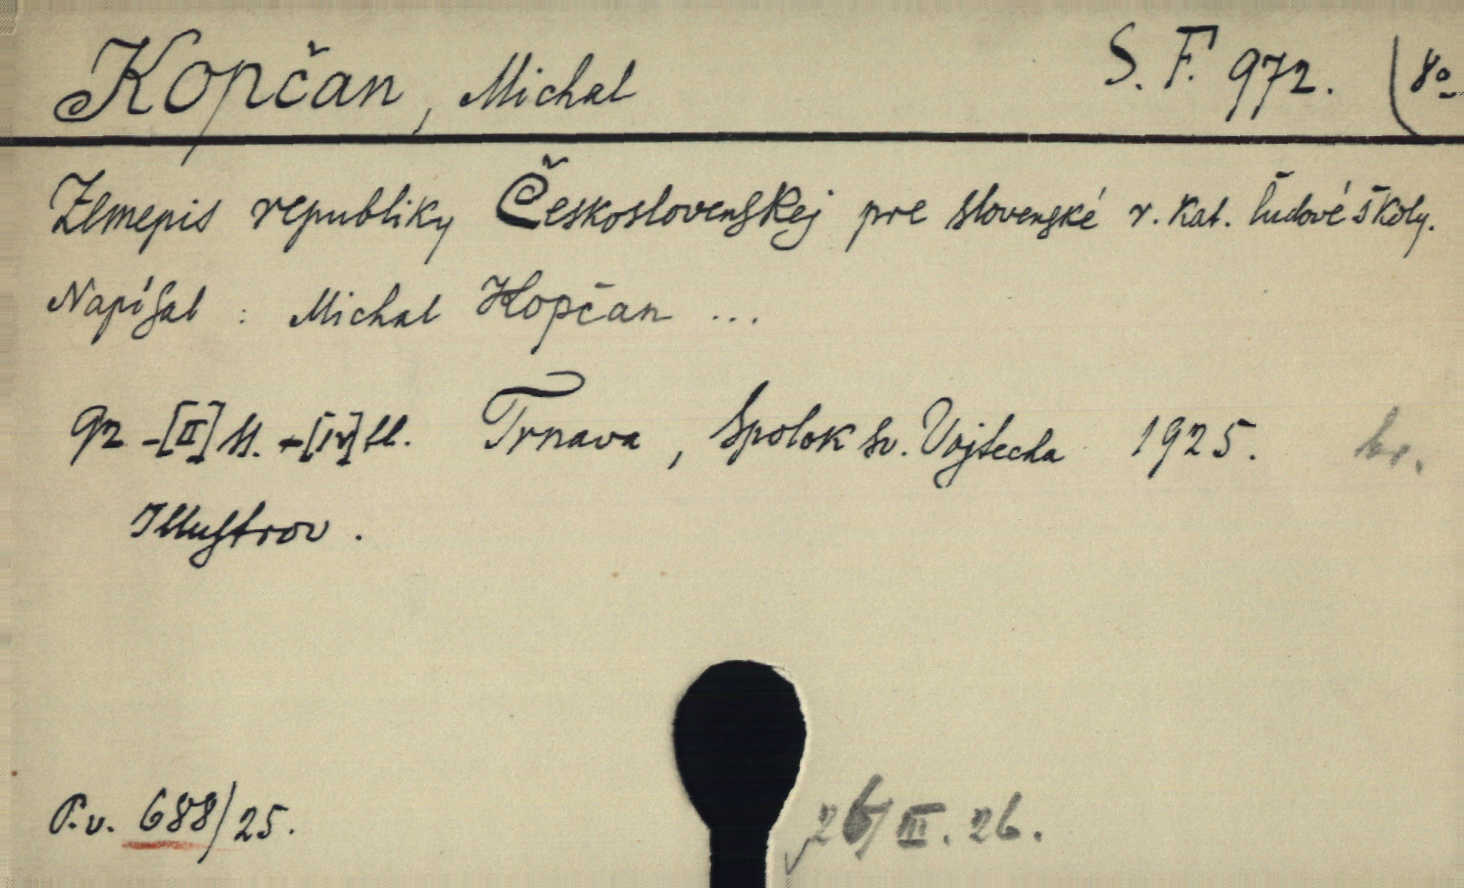 Kopčan, Michal S. F. 972. (8°
Zemepis republiky Československej pre slovenské r. kat. ľudové školy.
Napísal : Michal Kopčan ...
92 -[II] st. +[IV] st. Trnava, Spolok sv. Vojtecha 1925. br.
Illustrov.
P.v. 688/25.
26/III. 26.